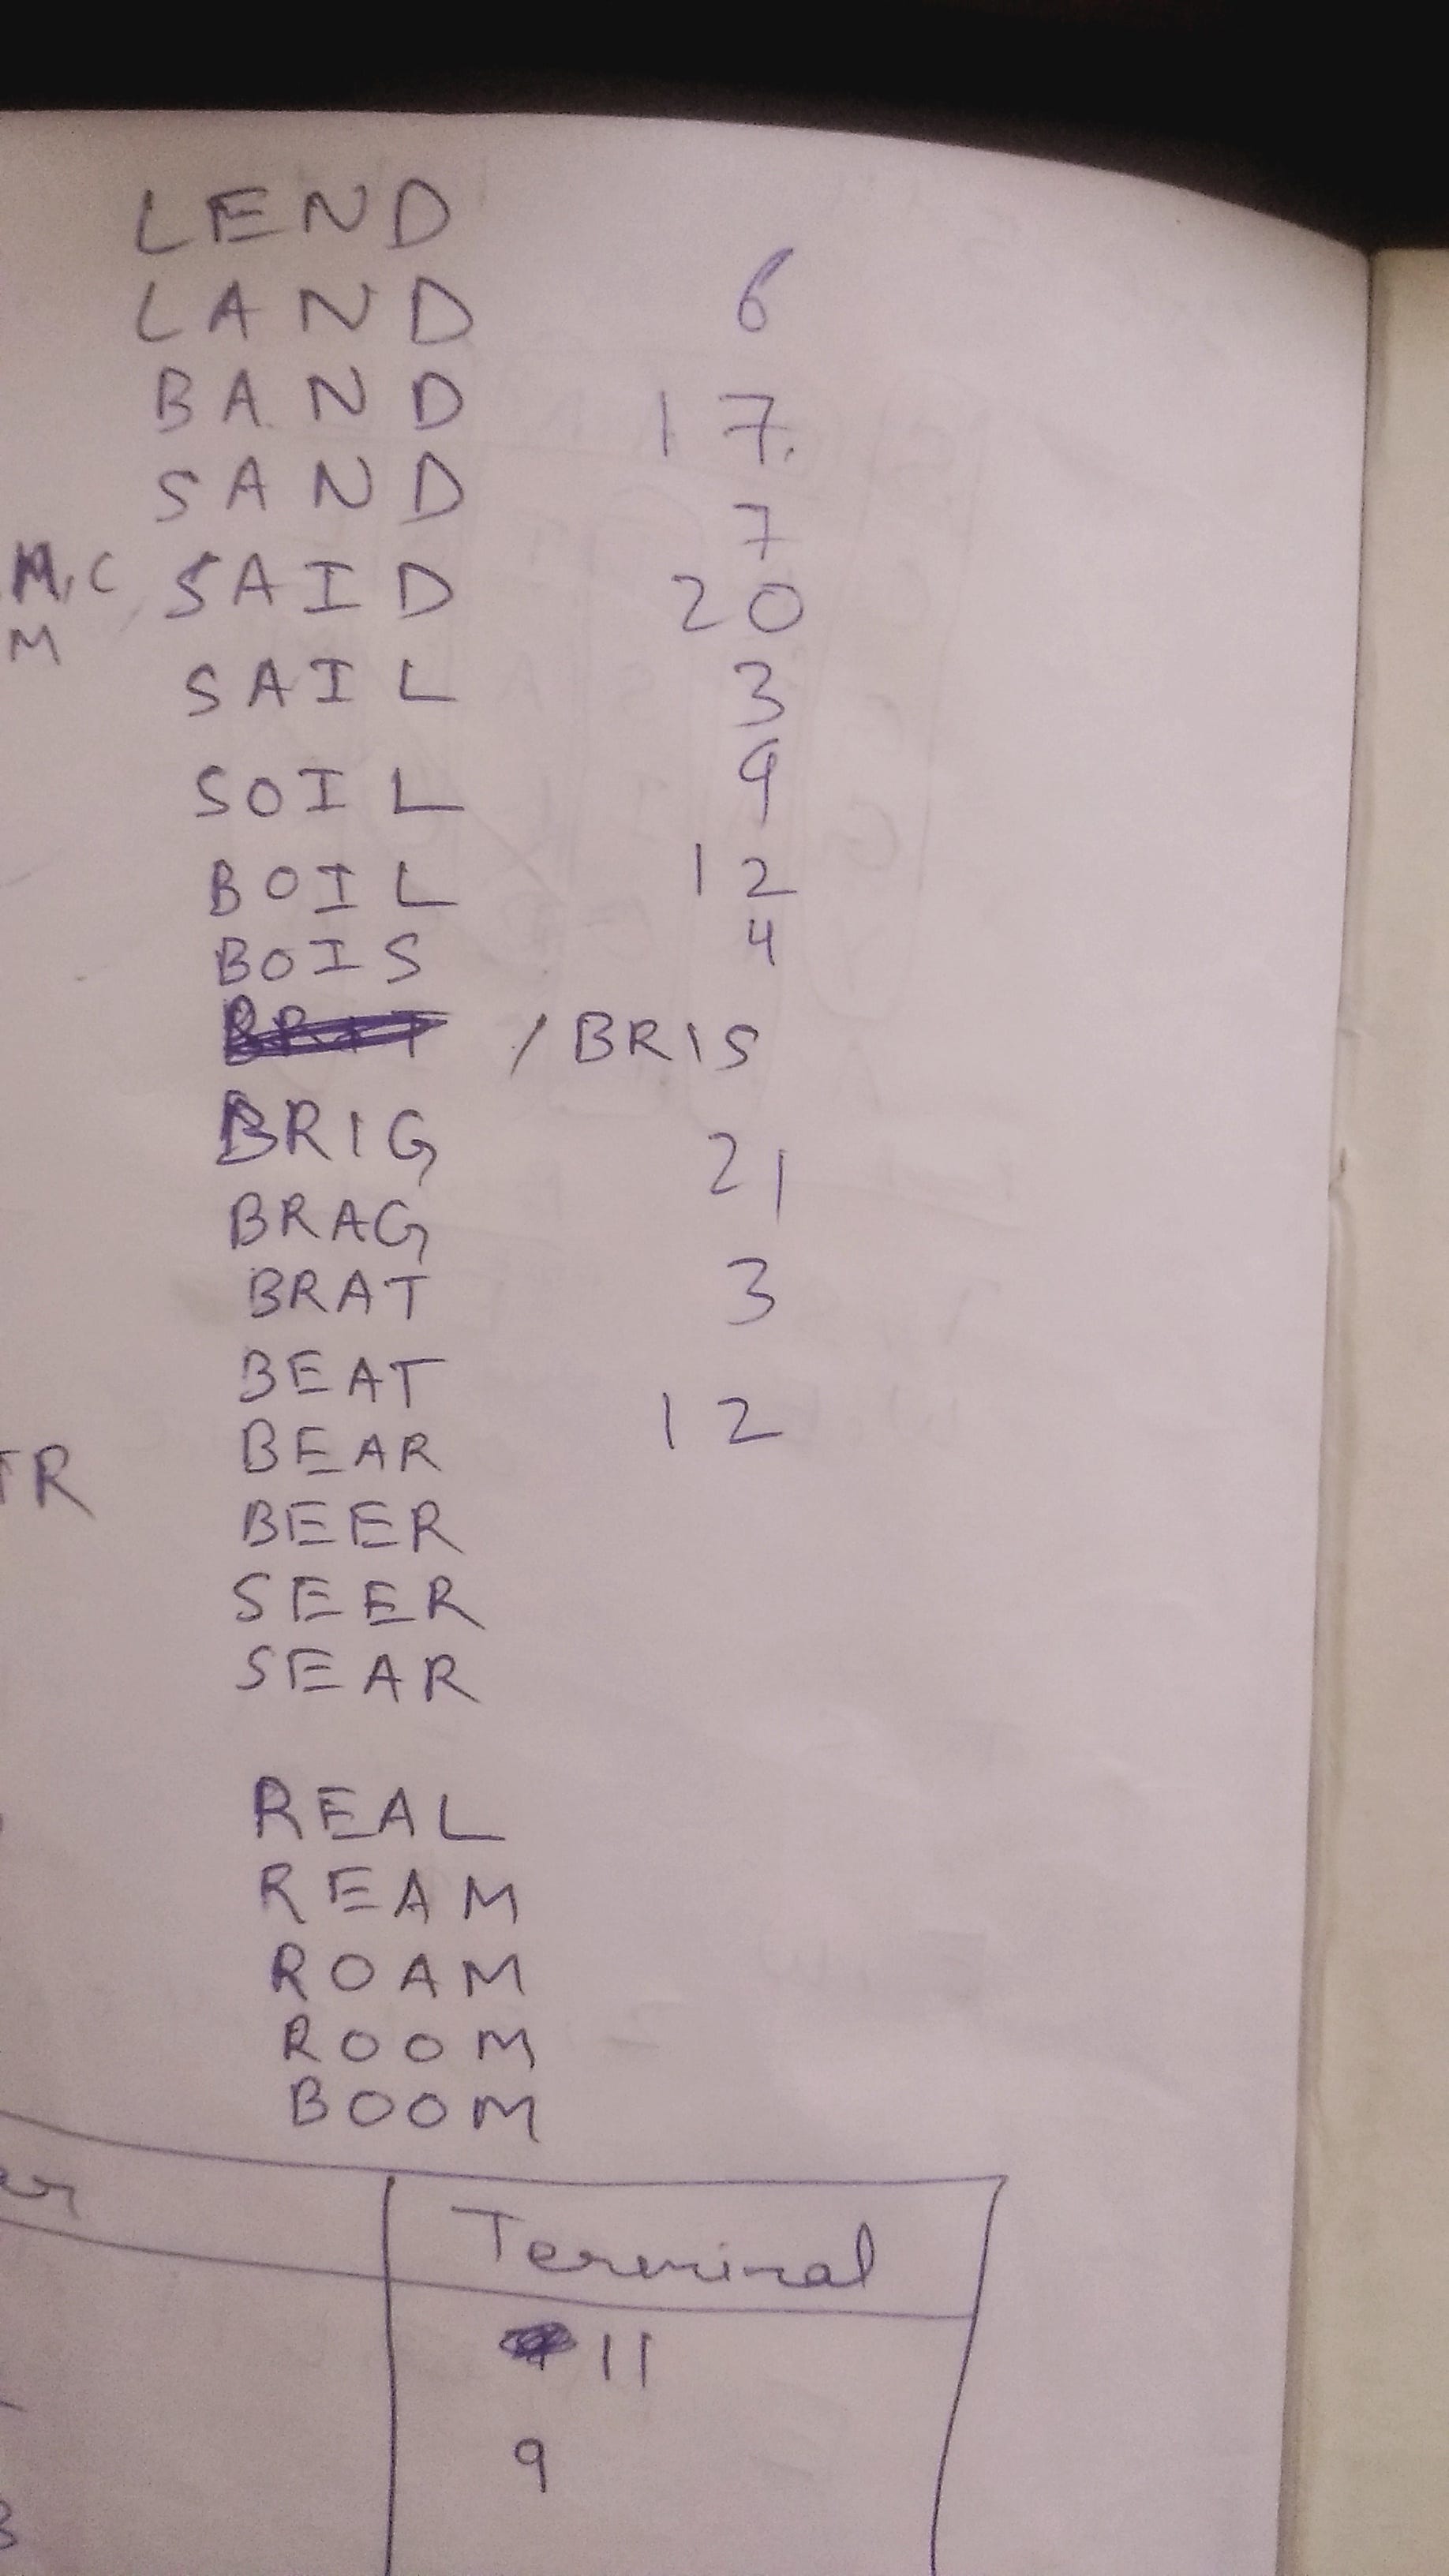 LEND
LAND 6
BAND 17.
SAND 7
M, C SAID 20
M
SAIL 3
SOIL 9
BOIL 12
BOIS 4
/BRIS
BRIG 21
BRAG
BRAT 3
BEAT
BEAR 12
TR
BEER
SEER
SEAR
REAL
REAM
ROAM
ROOM
BOOM
er Terminal
11
9
3